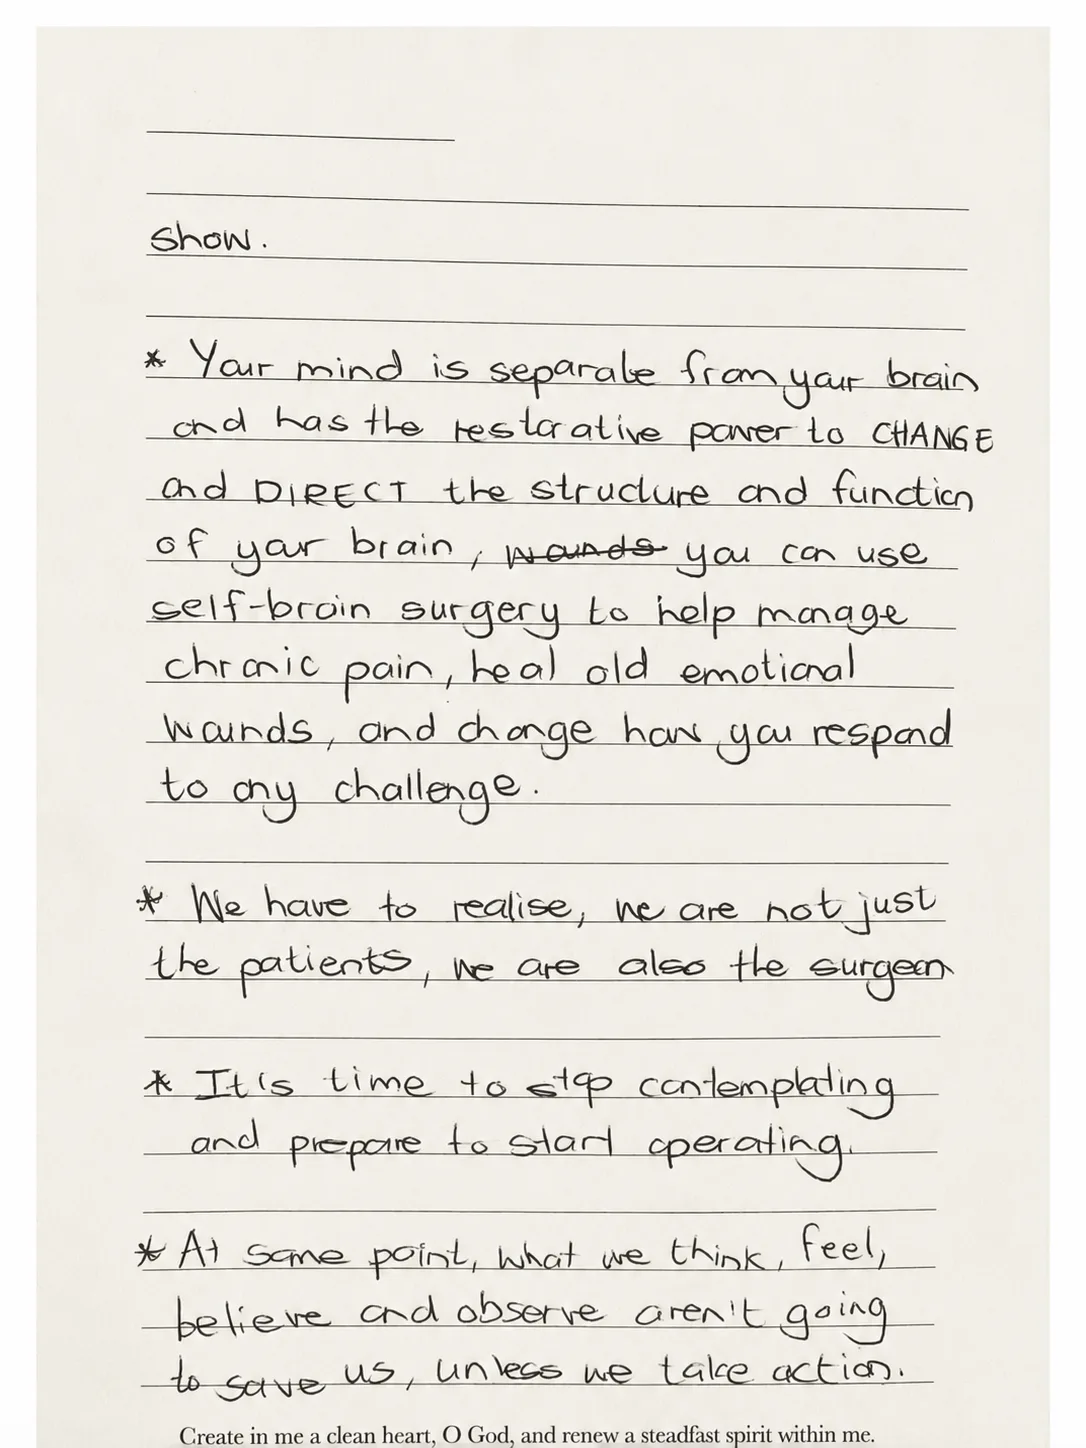 show.
* Your mind is separate from your brain
and has the restorative power to CHANGE
and DIRECT the structure and function
of your brain, wounds you can use
self-brain surgery to help manage
chronic pain, heal old emotional
wounds, and change how you respond
to any challenge.
* We have to realise, we are not just
the patients, we are also the surgeon
* It is time to stop contemplating
and prepare to start operating.
* At some point, what we think, feel,
believe and observe aren't going
to save us, unless we take action.
Create in me a clean heart, O God, and renew a steadfast spirit within me.